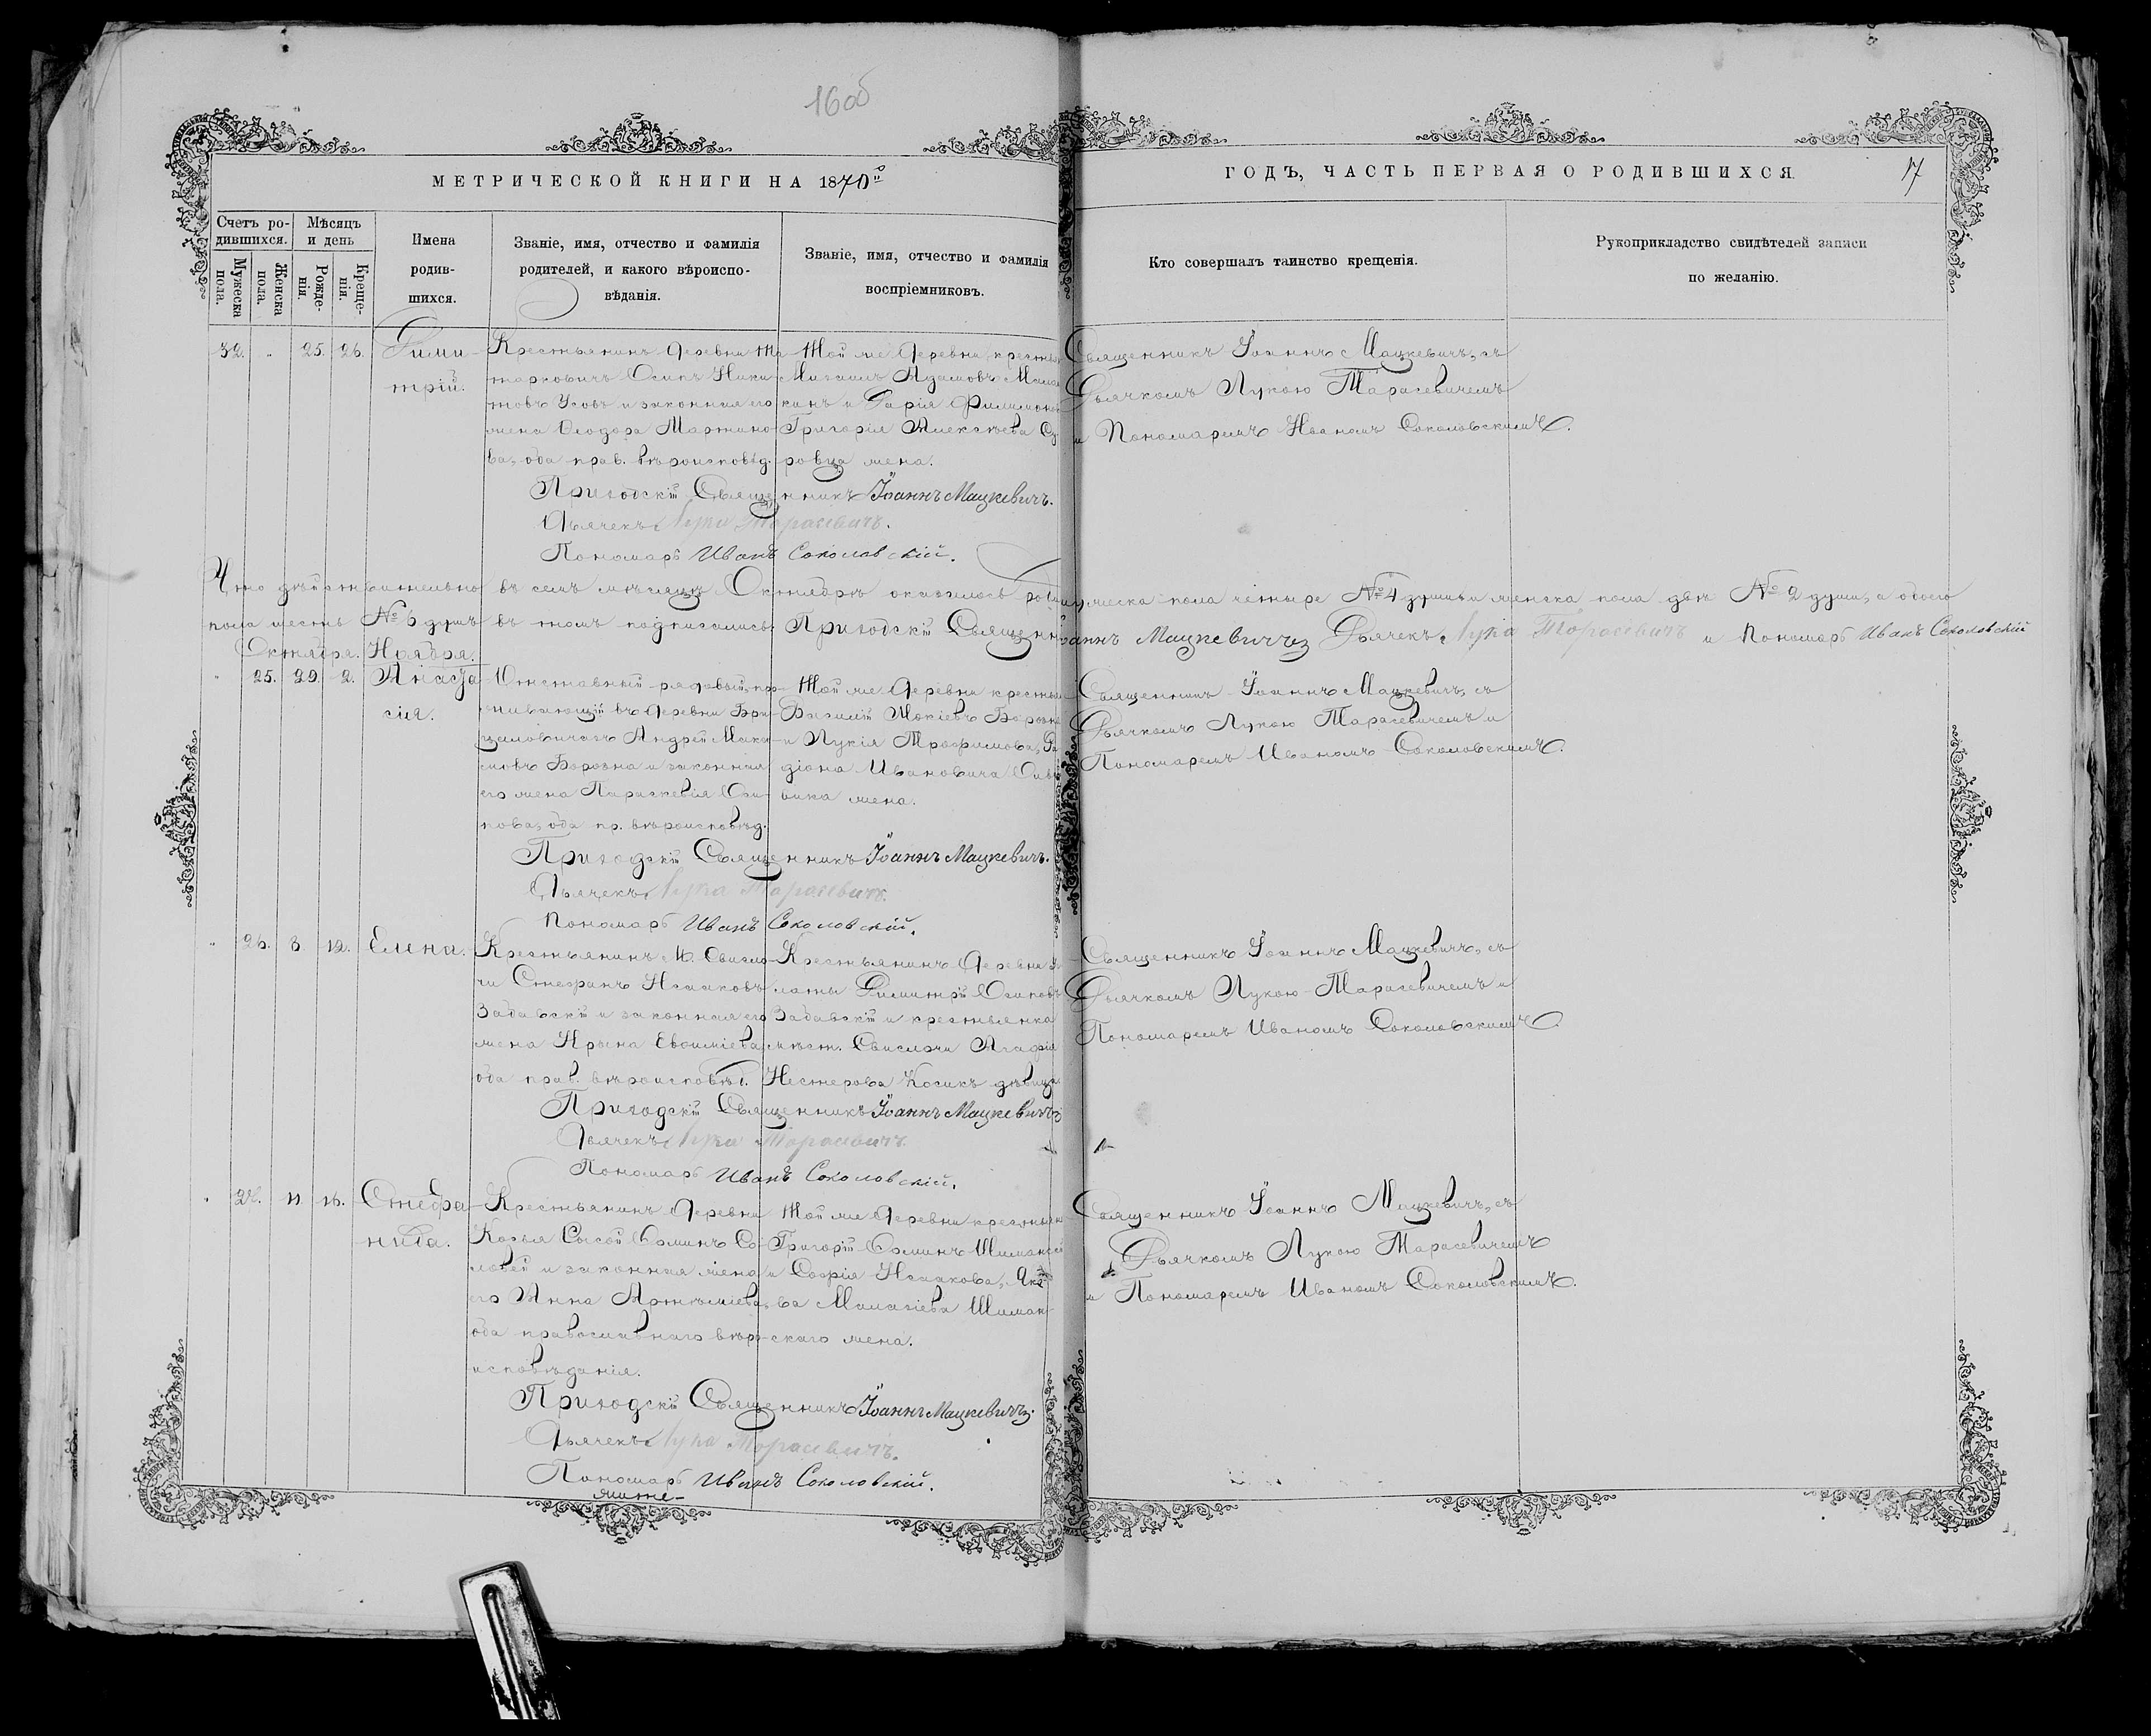 16 об
МЕТРИЧЕСКОЙ КНИГИ НА 1870й
ГОДЪ, ЧАСТЬ ПЕРВАЯ О РОДИВШИХСЯ.
17
Счетъ ро-
дившихся.
Мужеска
пола.
Женска
пола.
Мѣсяцъ
и день
Рожде-
нія.
Креще-
нія.
Имена
родив-
шихся.
Званіе, имя, отчество и фамилія
родителей, и какого вѣроиспо-
вѣданія.
Званіе, имя, отчество и фамилія
воспріемниковъ.
Кто совершалъ таинство крещенія.
Рукоприкладство свидѣтелей записи
по желанію.
32. „ 25. 26.
Дими-
трій.
Крестьянинъ деревни
Осипъ Ники-
товъ Усовъ и законная его
жена Ѳеодора Мартино-
ва, оба прав. вѣроисповѣд.
Той же деревни крестья
Михаилъ Адамовъ
и Дарія Филимоно
Григорія Алексѣева
жена.
Священникъ Іоаннъ Мацкевичъ, съ
Дьячкомъ Лукою Тарасевичемъ
и Пономаремъ Иваномъ Соколовскимъ.
Приходскій Священникъ Іоаннъ Мацкевичъ.
Дьячекъ Лука Тарасевичъ.
Пономарь Иванъ Соколовскій.
Что дѣйствительно въ семъ мѣсяцѣ Октябрѣ оказалось мужеска пола четыре № 4 души и женска пола двѣ № 2 души, а обоего
пола шесть № 6 душъ въ томъ подписались: Приходскій Священникъ Іоаннъ Мацкевичъ Дьячекъ Лука Тарасевичъ и Пономарь Иванъ Соколовскій
Октября. Ноября.
„ 25. 29. 2.
Анаста-
сія.
Отставный рядовый, про-
живающій въ деревни Бри-
цаловичахъ Андрей Макси-
мовъ Борозна и законная
его жена Параскевія Оси-
пова, оба пр. вѣроисповѣд.
Той же деревни крестья
Василій Мокіевъ Борозна
и Лукія Трофимова, Ра-
діона Ивановича
жена.
Священникъ Іоаннъ Мацкевичъ, съ
Дьячкомъ Лукою Тарасевичемъ и
Пономаремъ Иваномъ Соколовскимъ.
Приходскій Священникъ Іоаннъ Мацкевичъ.
Дьячекъ Лука Тарасевичъ.
Пономарь Иванъ Соколовскій.
„ 26. 8. 12.
Елена.
Крестьянинъ М. Свисло-
чи Стефанъ Исааковъ
Задавскій и законная его
жена Ирына Евѳиміева,
оба прав. вѣроисповѣд.
Крестьянинъ деревни
Димитрій Осиповъ
Задавскій и крестьянка
мѣст. Свислочи Агафія
Нестерова Косикъ дѣвица
Священникъ Іоаннъ Мацкевичъ, съ
Дьячкомъ Лукою Тарасевичемъ и
Пономаремъ Иваномъ Соколовскимъ.
Приходскій Священникъ Іоаннъ Мацкевичъ
Дьячекъ Лука Тарасевичъ
Пономарь Иванъ Соколовскій.
„ 27. 11. 16.
Стефа-
нида.
Крестьянинъ деревни
Козья Сысой Ѳоминъ Со-
ловей и законная жена
его Анна Артѣміева,
оба православнаго вѣро-
исповѣданія.
Той же деревни крестьян
Григорій Ѳоминъ
и Софія Исаакова,
жена.
Священникъ Іоаннъ Мацкевичъ, съ
Дьячкомъ Лукою Тарасевичемъ
и Пономаремъ Иваномъ Соколовскимъ.
Приходскій Священникъ Іоаннъ Мацкевичъ.
Дьячекъ Лука Тарасевичъ.
Пономарь Иванъ Соколовскій.